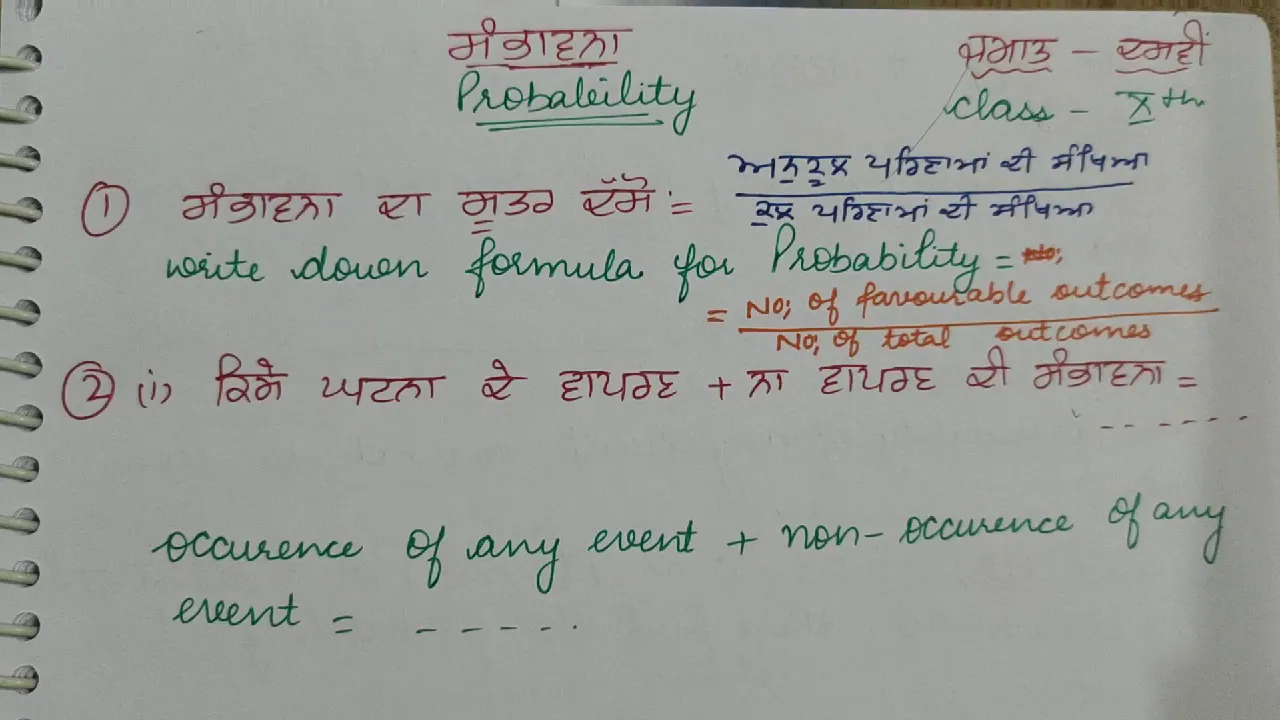 ਸੰਭਾਵਨਾ
Probability
ਜਮਾਤ - ਦਸਵੀਂ
class - Xth
① ਸੰਭਾਵਨਾ ਦਾ ਸੂਤਰ ਦੱਸੋ: = ਅਨੁਕੂਲ ਪਰਿਣਾਮਾਂ ਦੀ ਸੰਖਿਆ
ਕੁਲ ਪਰਿਣਾਮਾਂ ਦੀ ਸੰਖਿਆ
write down formula for Probability = No;
= No; of favourable outcomes
No; of total outcomes
② (i) ਕਿਸੇ ਘਟਨਾ ਦੇ ਵਾਪਰਣ + ਨਾ ਵਾਪਰਣ ਦੀ ਸੰਭਾਵਨਾ =
- - - - - -
occurence of any event + non-occurence of any
event = - - - - - .